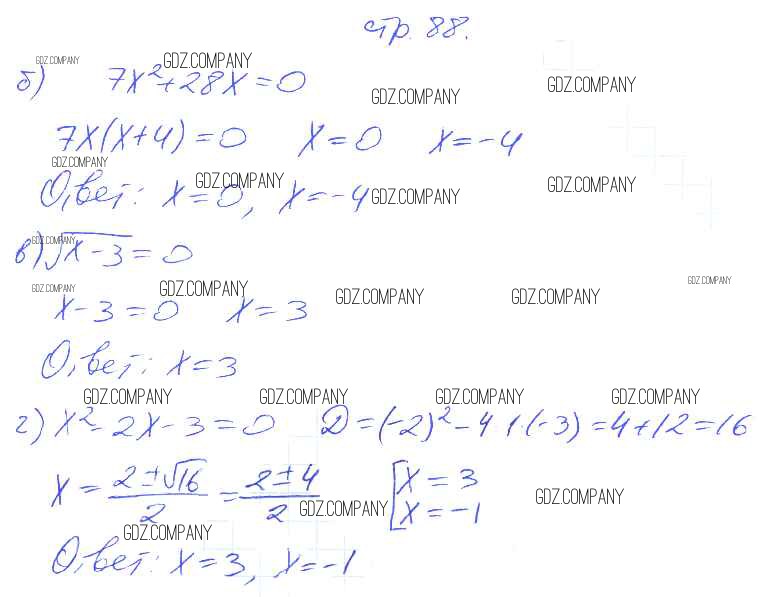 стр. 88.
GDZ.COMPANY GDZ.COMPANY
б) 7x²+28x=0 GDZ.COMPANY GDZ.COMPANY
7x(x+4)=0 x=0 x=-4
GDZ.COMPANY GDZ.COMPANY GDZ.COMPANY GDZ.COMPANY
Ответ: x=0, x=-4
GDZ.COMPANY
в) √(x-3)=0
GDZ.COMPANY GDZ.COMPANY GDZ.COMPANY GDZ.COMPANY GDZ.COMPANY
x-3=0 x=3
Ответ: x=3
GDZ.COMPANY GDZ.COMPANY GDZ.COMPANY GDZ.COMPANY
г) x²-2x-3=0 D=(-2)²-4·1·(-3)=4+12=16
x=(2±√16)/2=(2±4)/2 [x=3 x=-1
GDZ.COMPANY GDZ.COMPANY
GDZ.COMPANY
Ответ: x=3, x=-1